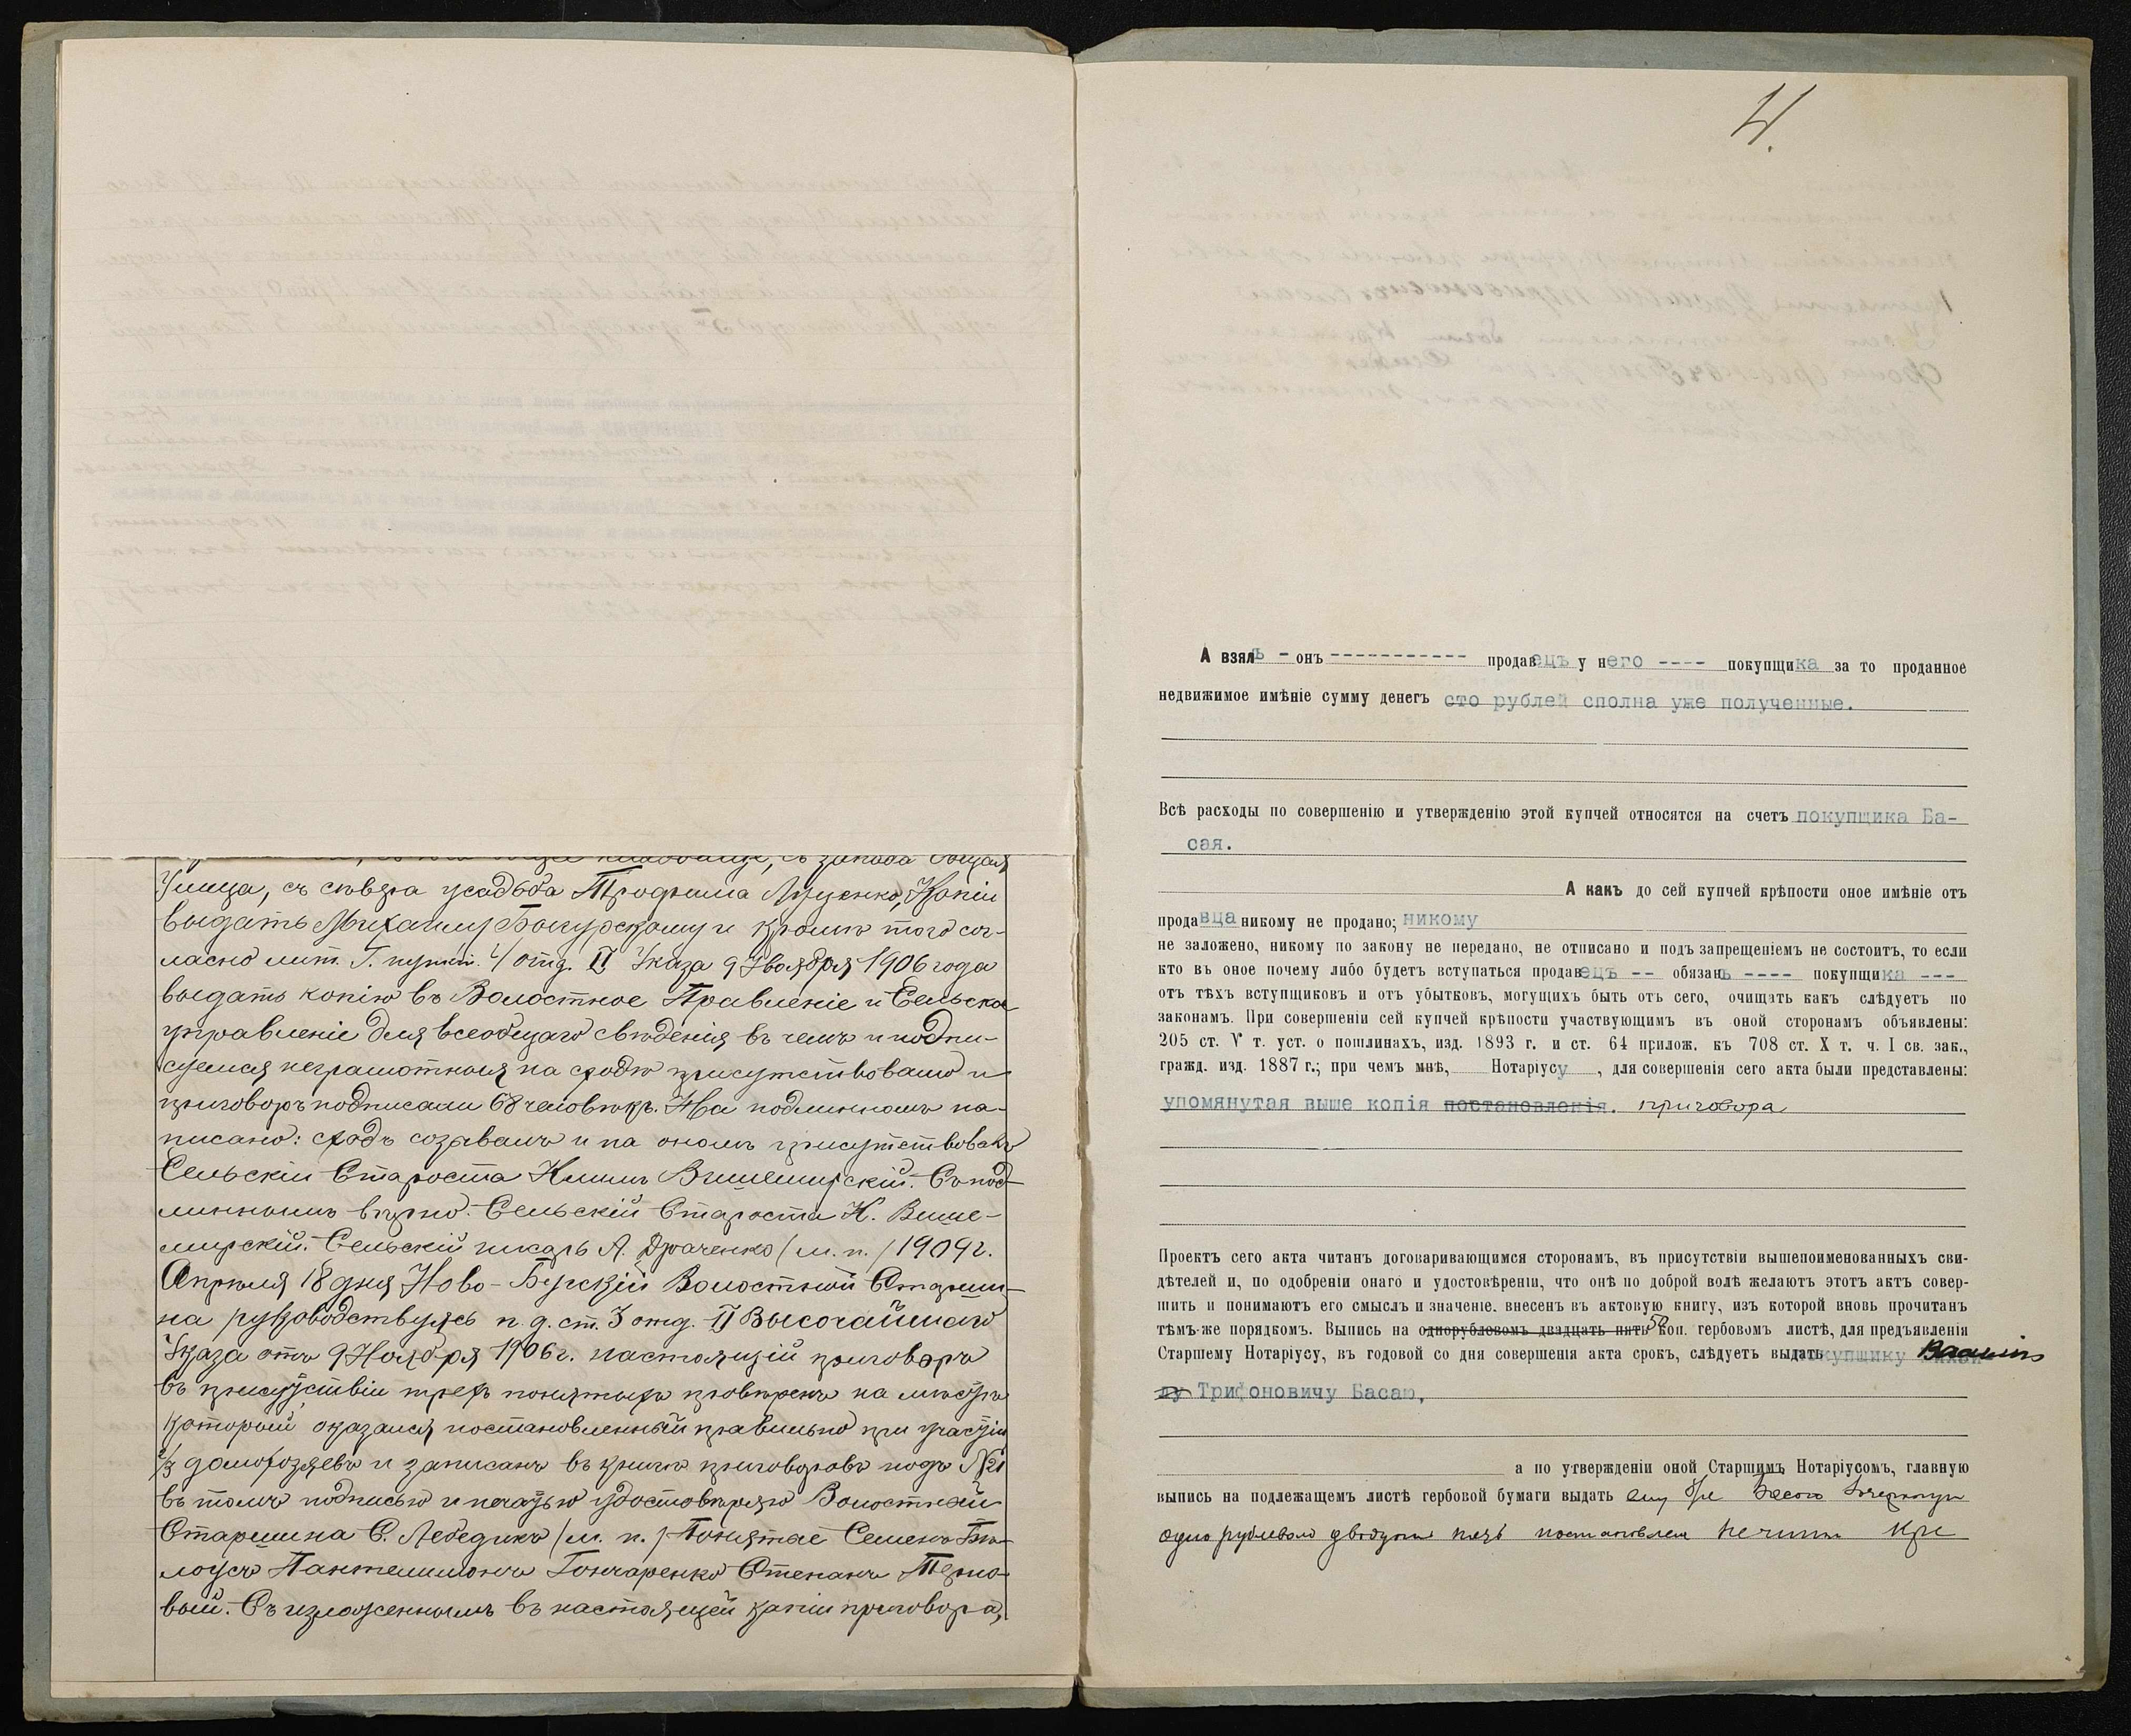 Улица, съ сѣвера усадьба Трофима Луценко, Копіи
выдать Михаилу Бокурскому и кромѣ того сог-
ласно лит. Г. пункт. 4 отд. II Указа 9 Ноября 1906 года
выдать копію въ Волостное Правленіе и Сельское
управленіе для всеобщаго свѣденія въ чемъ и подпи-
суемся неграмотныя на сходѣ присутствовало и
приговоръ подписали 68 человѣкъ. На подлинномъ на-
писано: сходъ созывалъ и на ономъ присутствовалъ
Сельскій Староста Климъ Вишемирскій. Съ под-
линнымъ вѣрно. Сельскій Староста К. Више-
мирскій. Сельскій писарь А. Драченко (м. п.) 1909 г.
Апрѣля 18 дня Ново-Бугскій Волостной Старши-
на руководствуясь п. д. ст. 3 отд. II Высочайшаго
Указа отъ 9 Ноября 1906 г. настоящій приговоръ
въ присуствіи трехъ понятыхъ провѣренъ на мѣстѣ
который оказался постановленный правильно при участіи
2/3 домохозяевъ и записанъ въ книгѣ приговоровъ подъ №21
въ томъ подписью и печатью удостовѣряю Волостной
Старшина С. Лебедикъ (м. п.) Понятые Семенъ Бѣ-
лоусъ Пантелимонъ Гончаренко Степанъ Терно-
вый. Съ изложеннымъ въ настоящей копіи приговора,
4.
А взялъ - онъ ----------- продавецъ у него ---- покупщика за то проданное
недвижимое имѣніе сумму денегъ сто рублей сполна уже полученные.
Всѣ расходы по совершенію и утвержденію этой купчей относятся на счетъ покупщика Ба-
сая.
А какъ до сей купчей крѣпости оное имѣніе отъ
продавца никому не продано; никому
не заложено, никому по закону не передано, не отписано и подъ запрещеніемъ не состоитъ, то если
кто въ оное почему либо будетъ вступаться продавецъ -- обязанъ ---- покупщика ---
отъ тѣхъ вступщиковъ и отъ убытковъ, могущихъ быть отъ сего, очищать какъ слѣдуетъ по
законамъ. При совершеніи сей купчей крѣпости участвующимъ въ оной сторонамъ объявлены:
205 ст. V т. уст. о пошлинахъ, изд. 1893 г. и ст. 64 прилож. къ 708 ст. X т. ч. I св. зак.,
гражд. изд. 1887 г.; при чемъ мнѣ, Нотаріусу, для совершенія сего акта были представлены:
упомянутая выше копія постановленія. приговора
Проектъ сего акта читанъ договаривающимся сторонамъ, въ присутствіи вышепоименованныхъ сви-
дѣтелей и, по одобреніи онаго и удостовѣреніи, что онѣ по доброй волѣ желаютъ этотъ актъ совер-
шить и понимаютъ его смыслъ и значеніе, внесенъ въ актовую книгу, изъ которой вновь прочитанъ
тѣмъ-же порядкомъ. Выпись на однорублевомъ двадцать пять 50 коп. гербовомъ листѣ, для предъявленія
Старшему Нотаріусу, въ годовой со дня совершенія акта срокъ, слѣдуетъ выдать покупщику
лу Трифоновичу Басаю,
а по утвержденіи оной Старшимъ Нотаріусомъ, главную
выпись на подлежащемъ листѣ гербовой бумаги выдать ему
одно рублевомъ